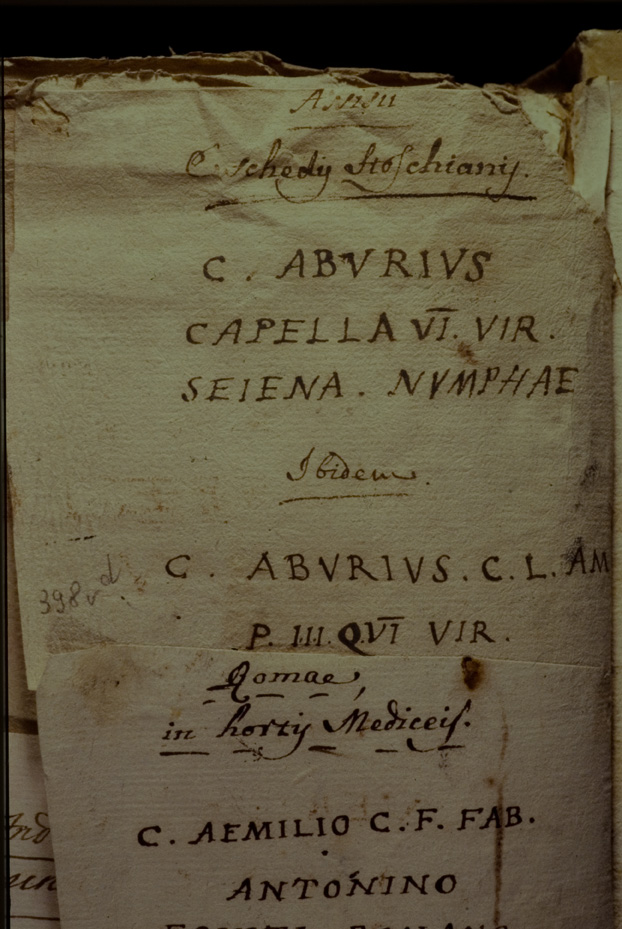 Assisii
E schedis Stoschianis.
C. ABVRIVS
CAPELLA VI. VIR.
SEIENA. NVMPHAE
Ibidem.
C. ABVRIVS. C. L. AM
398v d.
P. III. Q. VI VIR.
Romae,
in hortis Mediceis.
C. AEMILIO C. F. FAB.
ANTONINO